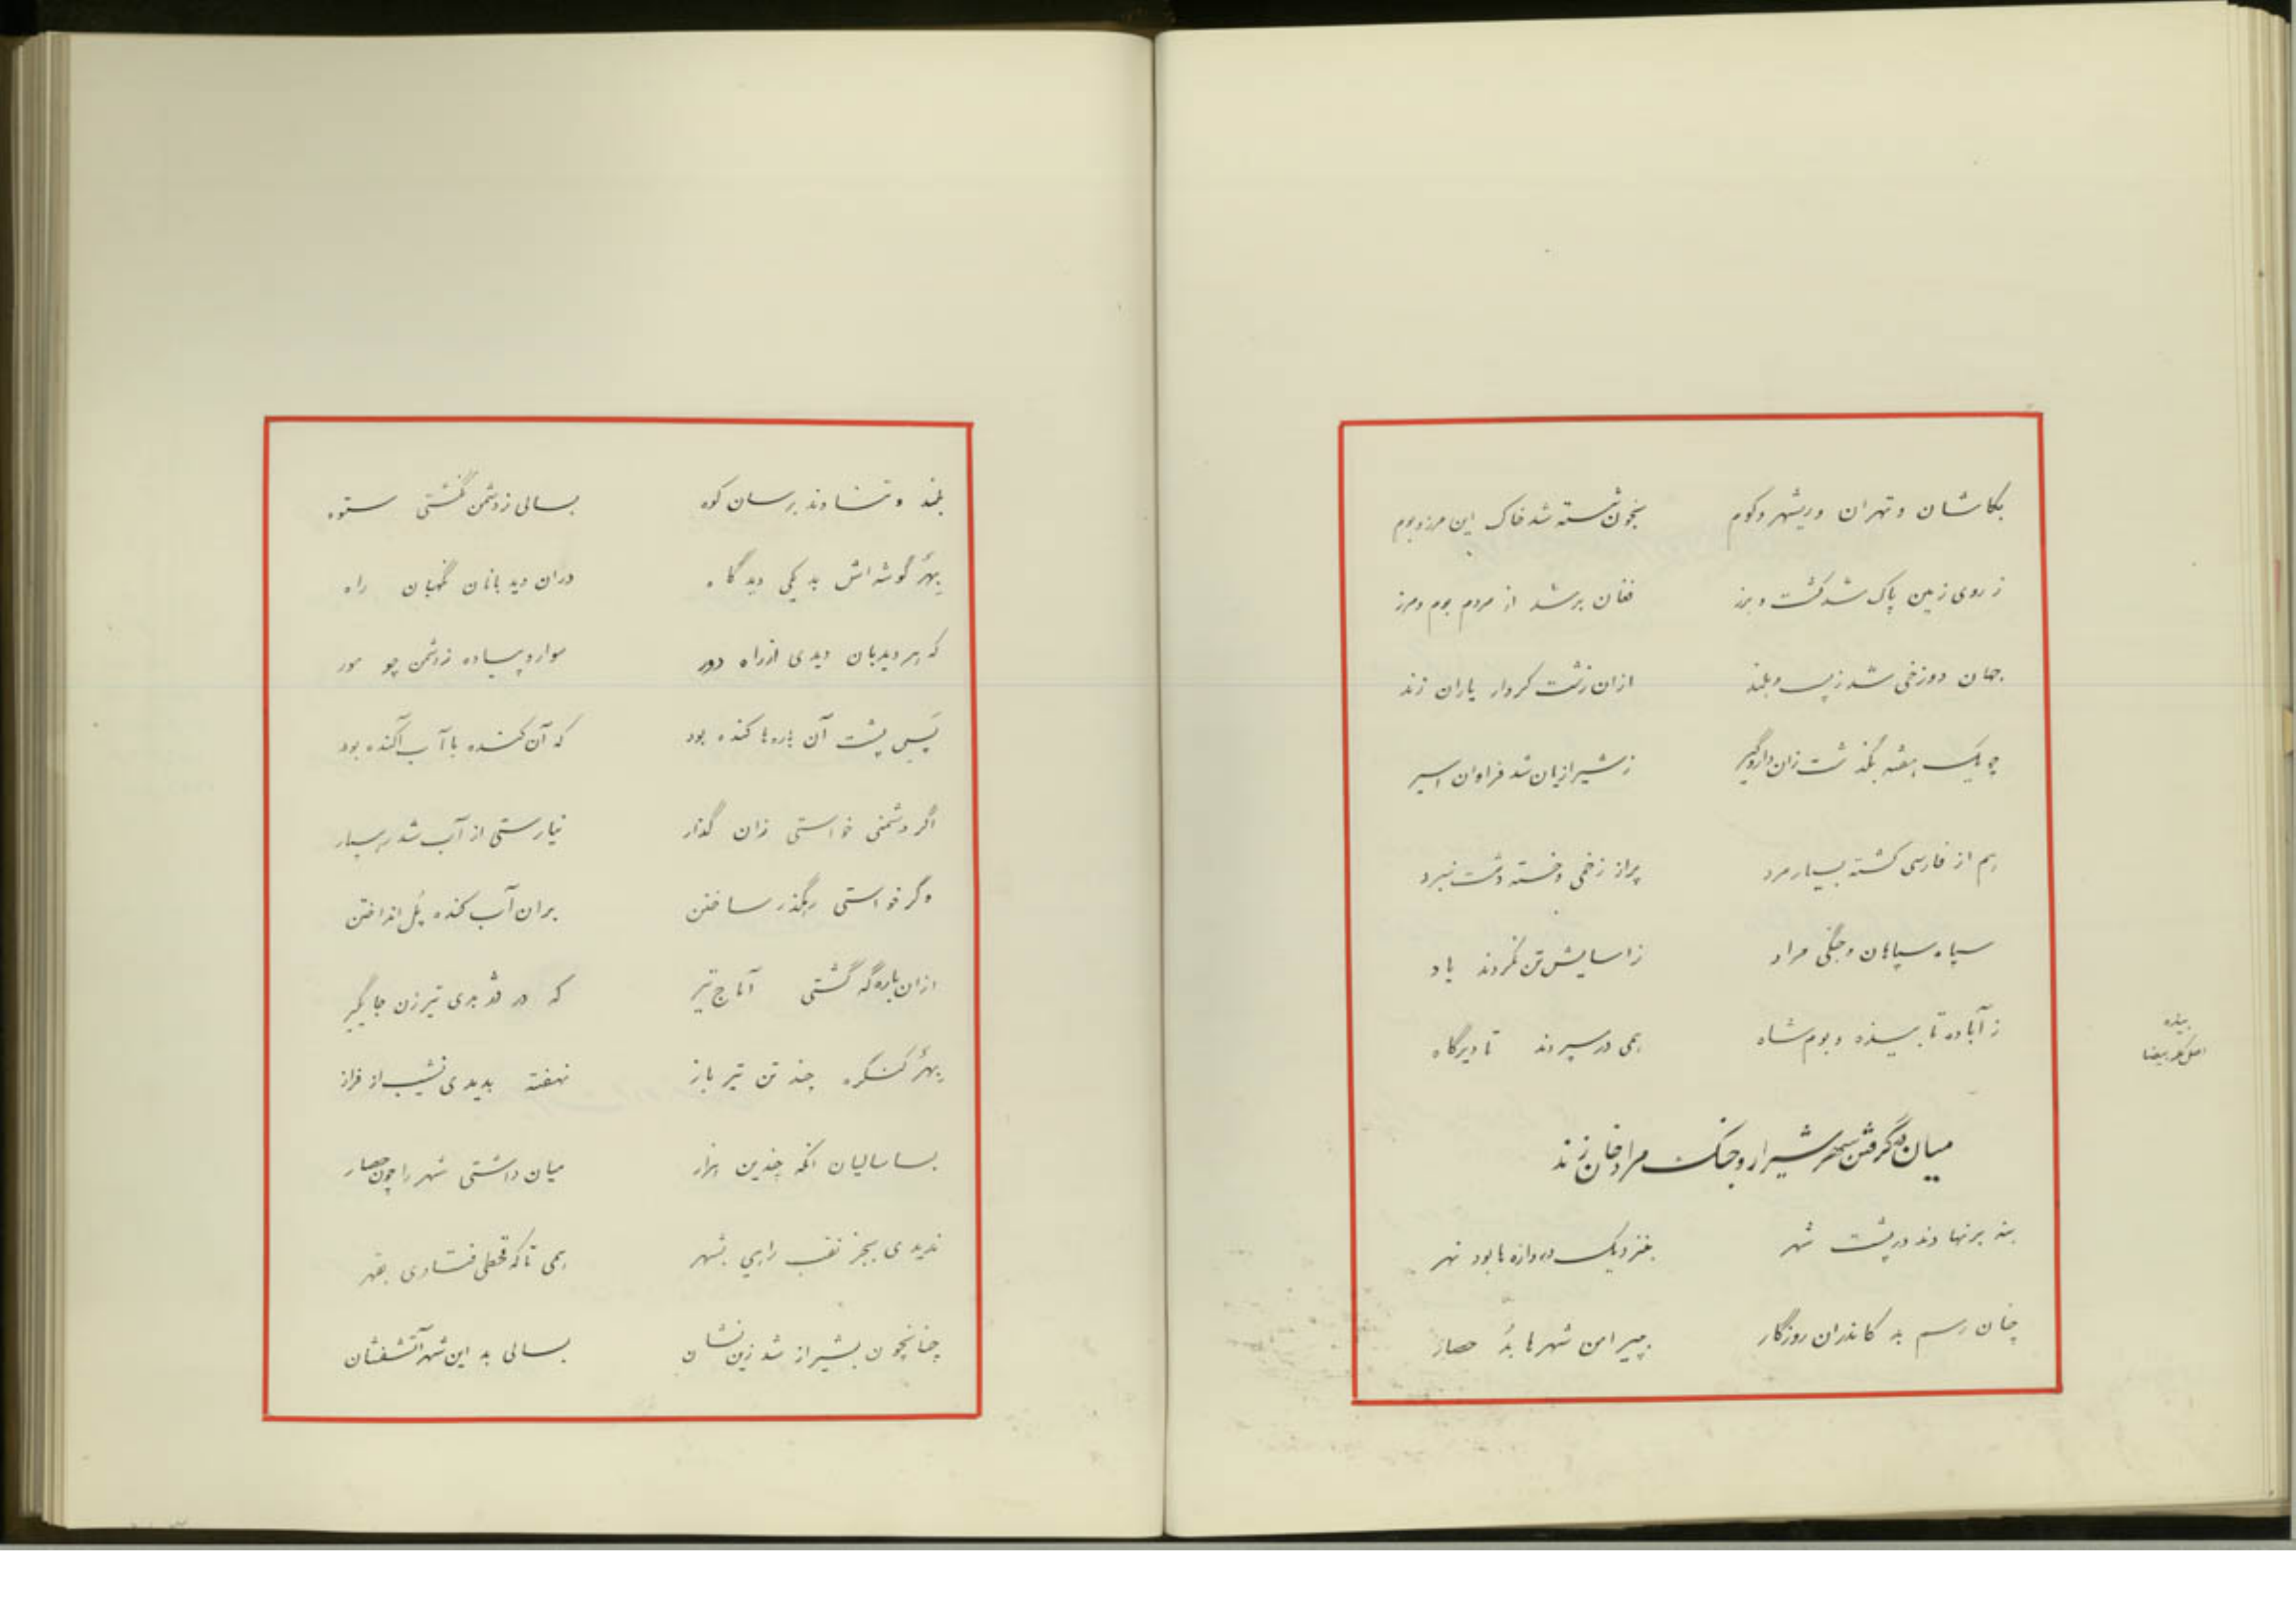 بکاشان و تهران و ریشهر و کوم بخون شسته شد خاک این مرز و بوم
ز روی زمین پاک شد کشت و برز فغان بر شد از مردم بوم و مرز
جهان دوزخی شد ز پست و بلند ازان زشت کردار یاران زند
چو یک هفته بگذشت زان داروگیر ز شیرازیان شد فراوان اسیر
هم از فارسی کشته بسیار مرد پر از زخمی و خسته دشت نبرد
سپاه سپاهان و جنگی مراد ز اسایش تن نکردند یاد
ز آباده تا بیذه و بوم شاه همی در سپردند تا دیرگاه
بیذه
اصل کلمه بیضا
میان گرفتن شهر شیراز و جنگ مراد خان زند
بنه بر نهادند در پشت شهر بنزدیک دروازه ها بود نهر
چنان رسم بد کاندران روزگار بپیرامن شهرها بُد حصار
بلند و تناوند برسان کوه بسالی ز دشمن نگشتی ستوه
بهر گوشه اش بد یکی دیدگاه دران دیدبانان نگهبان راه
که هر دیدبان دیدی از راه دور سوار و پیاده ز دشمن چو مور
پَسِ پشت آن باره‌ها کنده بود که آن کنده با آب آکنده بود
اگر دشمنی خواستی زان گذار نیارستی از آب شد رهسپار
وگر خواستی رهگذر ساختن بران آب کنده پُل انداختن
ازان باره گه گشتی آماج تیر که در بدی تیرزن جایگیر
بهر کنگره چند تن تیر باز نهفته بدیدی نشیب از فراز
بسا سالیان انکه چندین هزار میان داشتی شهر را چون حصار
ندیدی بجز نقب راهی بشهر همی تا که قحطی فتادی بقهر
چنانچون بشیراز شد زین نشان بسالی بد این شهر آتشفشان